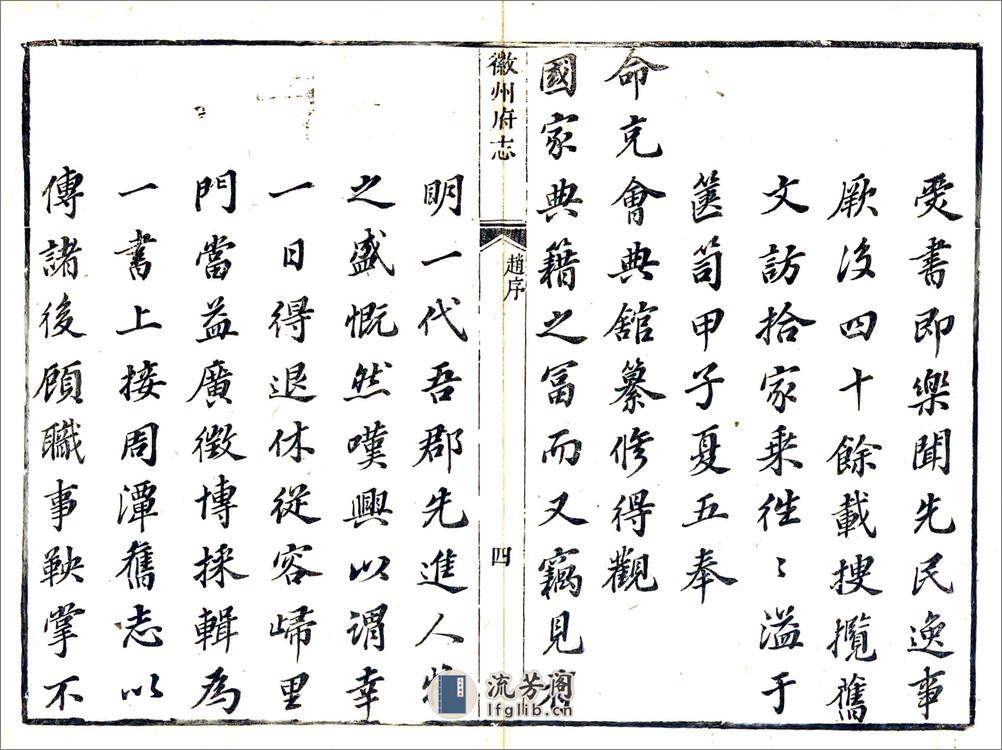 受書即樂聞先民逸事
厥後四十餘載搜攬舊
文訪拾家乘往〻溢于
篋笥甲子夏五奉
命充會典館纂修得觀
國家典籍之冨而又竊見
徽州府志
趙序
四
明一代吾郡先進人物
之盛慨然嘆興以謂幸
一日得退休從容歸里
門當益廣徵博採輯為
一書上接周潭舊志以
傳諸後顧職事鞅掌不
流芳阁
lfglib.cn